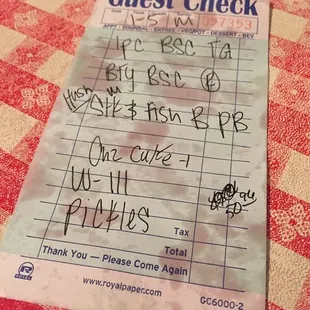 Guest Check
1-5/M 057353
APPT - SOUP/SAL - ENTREE - VEG/POT - DESSERT - BEV
1pc BSC TG
Bfy BSC B
Hush
Stk & Fish B PB
One Cake -1
W-111
Pickles
Tax
Total
Thank You — Please Come Again
www.royalpaper.com
GC6000-2